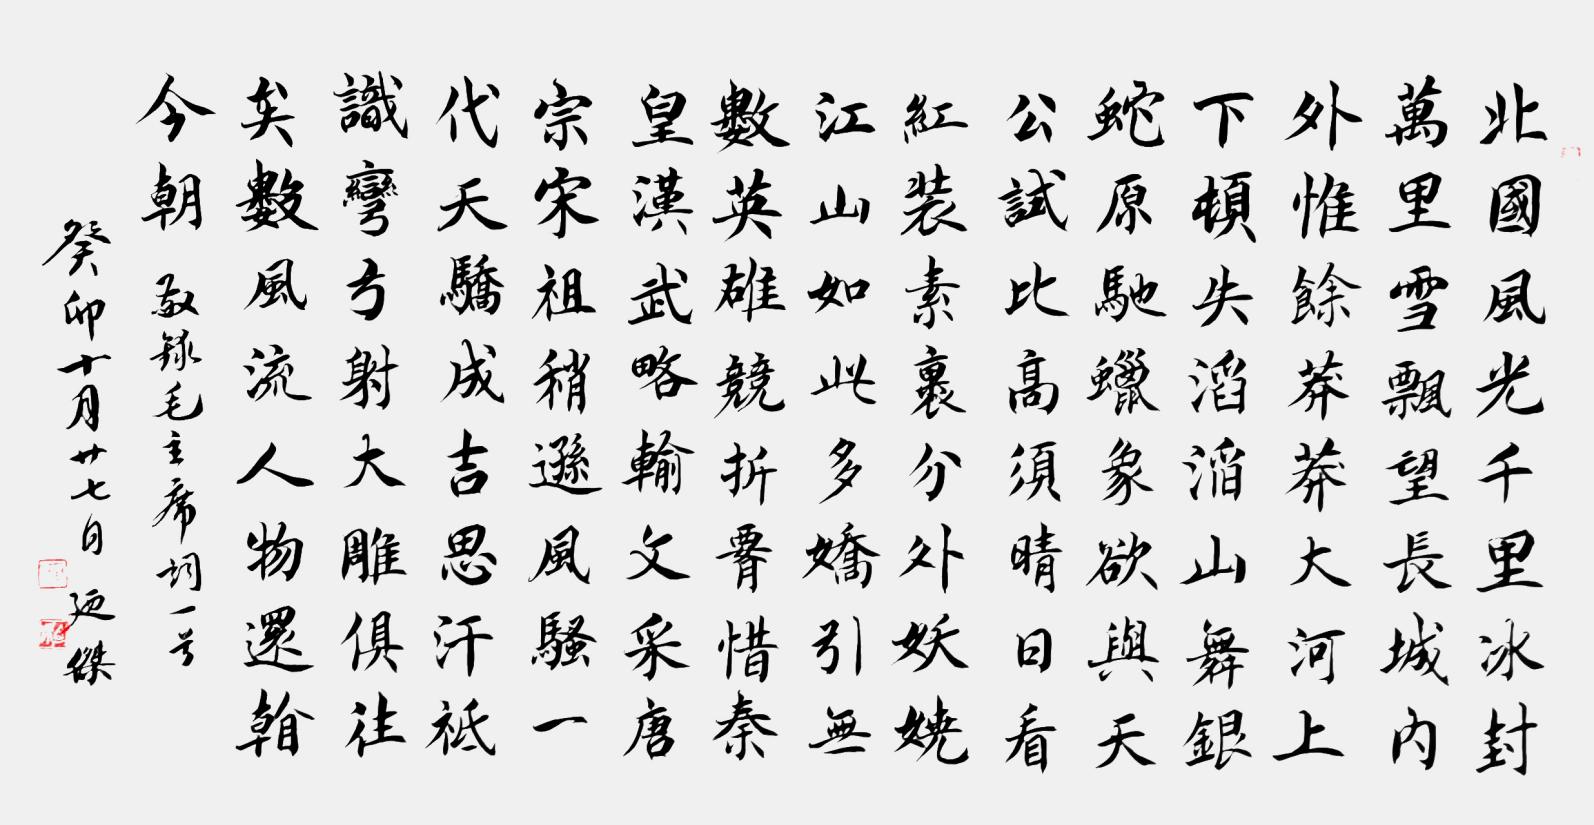 北國風光千里冰封
萬里雪飄望長城內
外惟餘莽莽大河上
下頓失滔滔山舞銀
蛇原馳蠟象欲與天
公試比高須晴日看
紅裝素裹分外妖嬈
江山如此多嬌引無
數英雄競折腰惜秦
皇漢武略輸文采唐
宗宋祖稍遜風騷一
代天驕成吉思汗祇
識彎弓射大雕俱往
矣數風流人物還看
今朝 敬錄毛主席詞一首
癸卯十月廿七日 廼傑